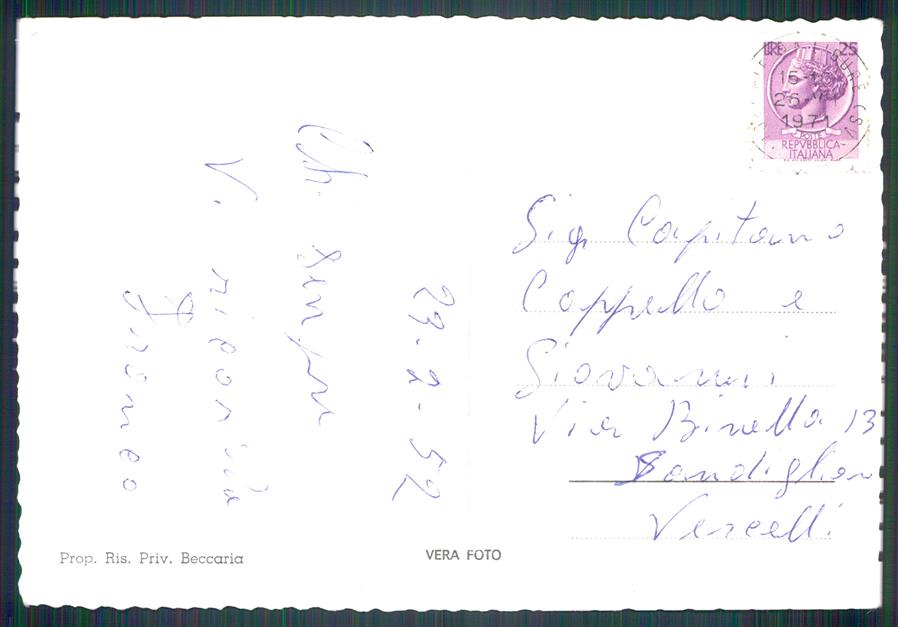 Ch sempre
V. ricorda
Franco
23.2.52
LIRE 25
LIGURE (SV)
26
1971
POSTE
REPVBBLICA
ITALIANA
Sig Capitano
Cappello e
Giovanni
Via Binella 13
Sandiglian
Vercelli
Prop. Ris. Priv. Beccaria
VERA FOTO